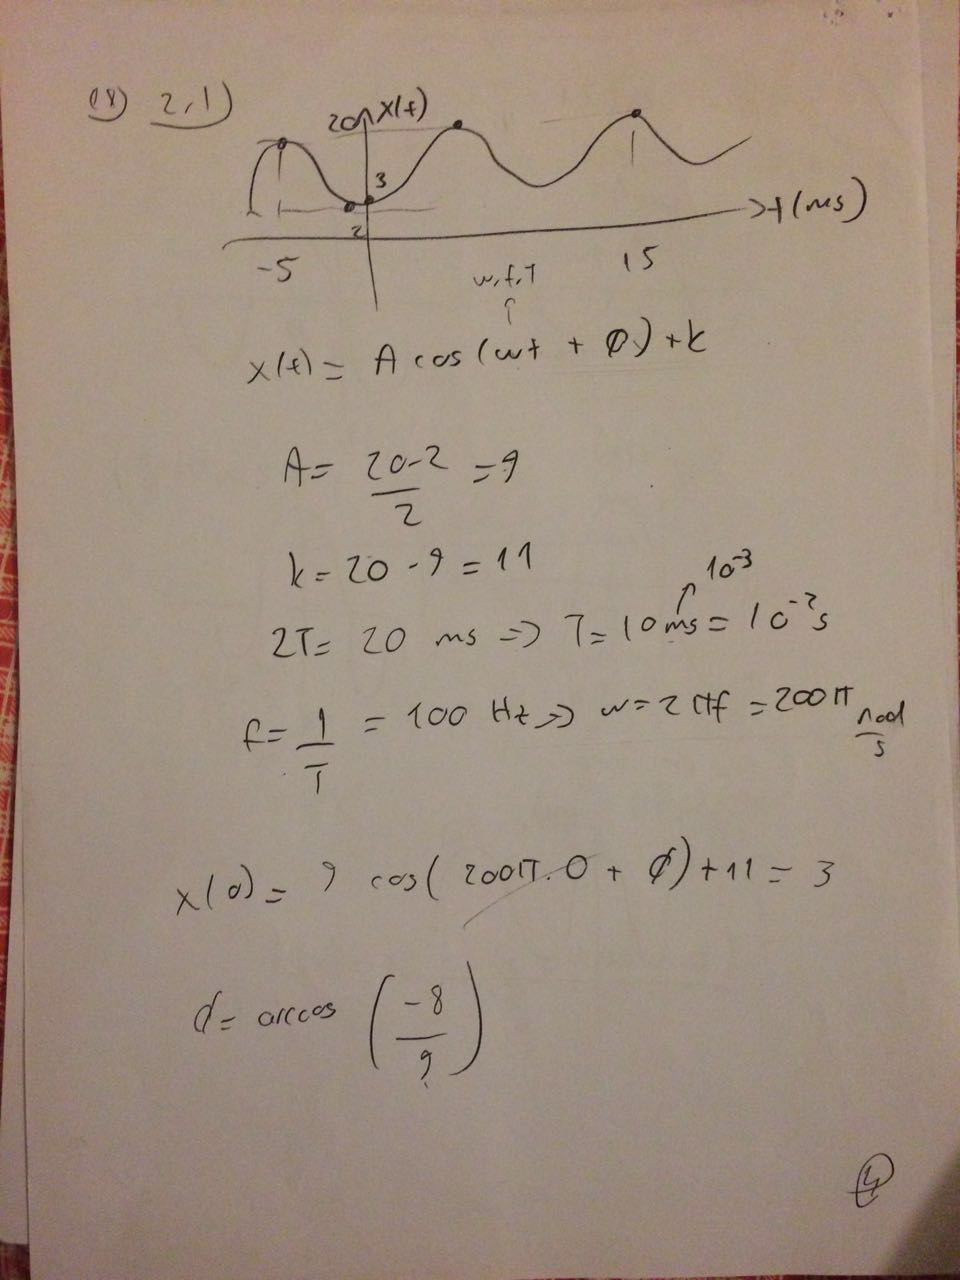 18) 2,1)
20 x(t)
3
2
t(ms)
-5 15
w,f,T
x(t) = A cos(wt + φ) + k
A = 20-2 / 2 = 9
k = 20 - 9 = 11
10^-3
2T = 20 ms => T = 10 ms = 10^-2 s
f = 1/T = 100 Hz => w = 2πf = 200π rad/s
x(0) = 9 cos(200π.0 + φ) + 11 = 3
φ = arccos (-8/9)